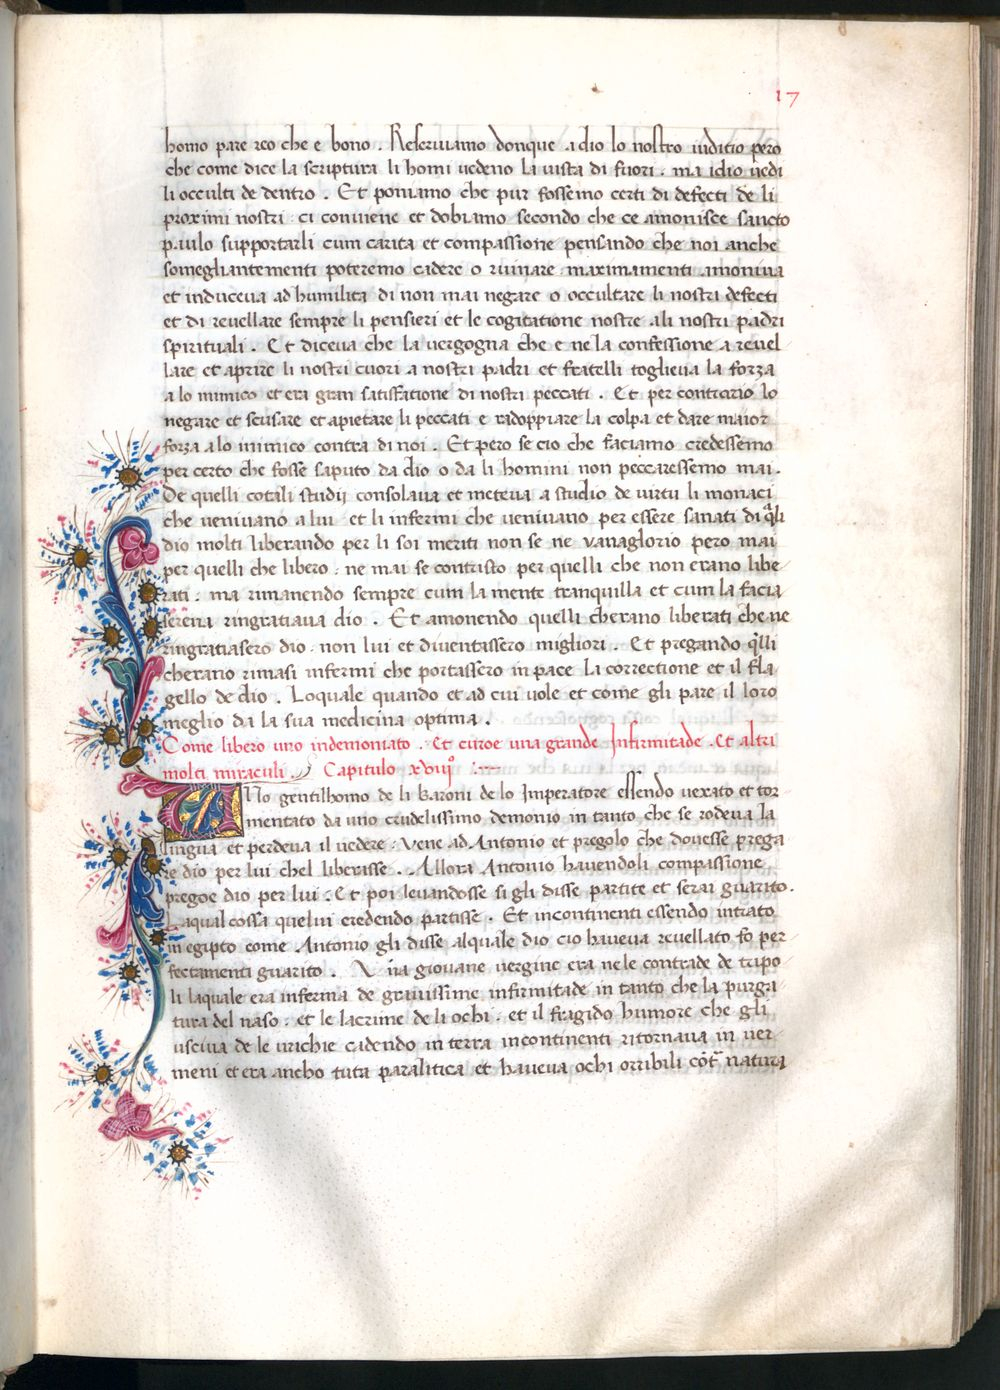 17
homo pare reo che e bono . Reserviamo donque a dio lo nostro iudicio pero
che come dice la scriptura li homi vedeno la vista di fuori . ma idio vedi
li occulti de dentro . Et poniamo che pur fossemo certi di defecti de li
proximi nostri : ci conviene et dobiamo secondo che ce amonisce sancto
paulo supportarli cum carita et compassione pensando che noi anche
somegliantementi poteremo cadere o ruinare . maximamenti amoniva
et induceva ad humilita di non mai negare o occultare li nostri defecti
et di revellare sempre li pensieri et le cogitatione nostre ali nostri padri
spirituali . Et diceva che la vergogna che e ne la confessione a revel
lare et aprire li nostri cuori a nostri padri et fratelli toglieva la forza
a lo inimico et era gran satisfatione di nostri peccati . Et per contrario lo
negare et scusare et apietare li peccati e radoppiare la colpa et dare maior
forza a lo inimico contra di noi . Et pero se cio che faciamo credessemo
per certo che fosse saputo da dio o da li homini non peccaressemo mai .
De quelli cotali studii consolava et meteva a studio de virtu li monaci
che venivano a lui et li infermi che venivano per essere sanati di q̃li
dio molti liberando per li soi meriti non se ne vanaglorio pero mai
per quelli che libero : ne mai se contristo per quelli che non erano libe
rati : ma rimanendo sempre cum la mente tranquilla et cum la facia
serena ringratiava dio . Et amonendo quelli cherano liberati che ne
ringratiasero dio : non lui et diventassero migliori . Et pregando q̃lli
cherano rimasi infermi che portassero in pace la correctione et il fla
gello de dio . Loquale quando et ad cui vole et come gli pare il loro
meglio da la sua medicina optima .
Come libero uno indemoniato . Et curoe una grande Infirmitade . Et altri
molti miraculi . Capitulo xviiiº :~
VNo gentilhomo de li Baroni de lo Imperatore essendo vexato et tor
mentato da uno crudelissimo demonio in tanto che se rodeva la
lingua et perdeva il vedere : Vene ad Antonio et pregolo che dovesse prega
re dio per lui chel liberisse . Allora Antonio havendoli compassione
pregoe dio per lui . Et poi levandosse si gli disse partite et serai guarito .
Laqual cossa quelui credendo partisse . Et incontinenti essendo intrato
in egipto come Antonio gli disse alquale dio cio haveva revellato fo per
fectamenti guarito . Vña giovane vergine era nele contrade de tripo
li laquale era inferma de gravissime infirmitade in tanto che la purga
tura del naso . et le lacrime de li ochi . et il fragido humore che gli
usciva de le urichie cadendo in terra incontinenti ritornava in ver
meni et era ancho tuta paralitica et haveva ochi orribili cõt̃ natura